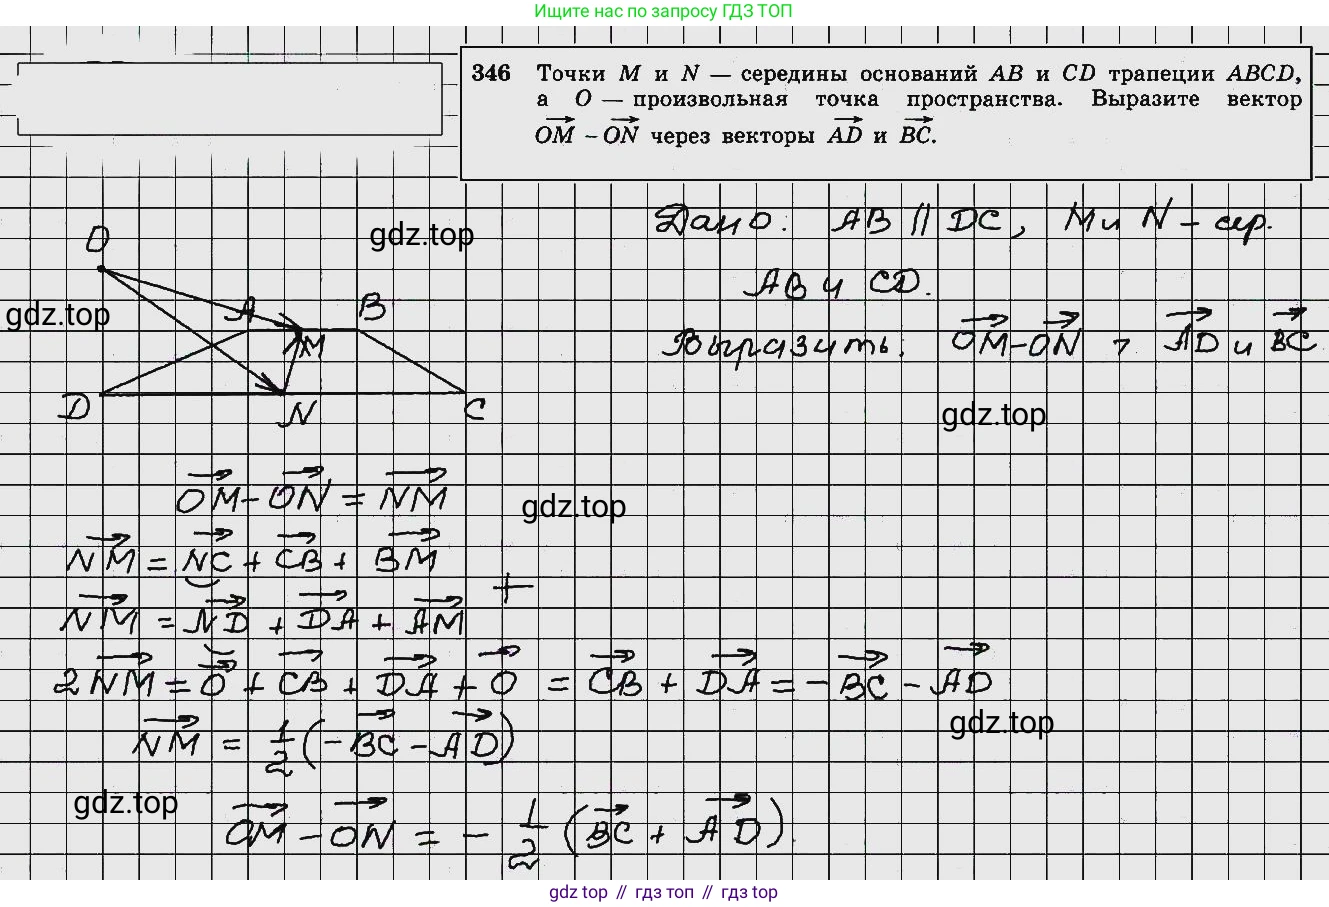 Ищите нас по запросу ГДЗ ТОП
346 Точки M и N — середины оснований AB и CD трапеции ABCD,
а O — произвольная точка пространства. Выразите вектор
OM⃗ – ON⃗ через векторы AD⃗ и BC⃗.
Дано: AB || DC, M и N – сер.
AB и CD.
Выразить: OM⃗ – ON⃗ , AD⃗ и BC⃗
O
gdz.top
gdz.top
A
B
M
D
N
C
gdz.top
OM⃗ – ON⃗ = NM⃗
gdz.top
NM⃗ = NC⃗ + CB⃗ + BM⃗
+
NM⃗ = ND⃗ + DA⃗ + AM⃗
2NM⃗ = O⃗ + CB⃗ + DA⃗ + O⃗ = CB⃗ + DA⃗ = – BC⃗ – AD⃗
gdz.top
NM⃗ = 1/2 (– BC⃗ – AD⃗)
gdz.top
OM⃗ – ON⃗ = – 1/2 (BC⃗ + AD⃗).
gdz top // гдз топ // gdz top